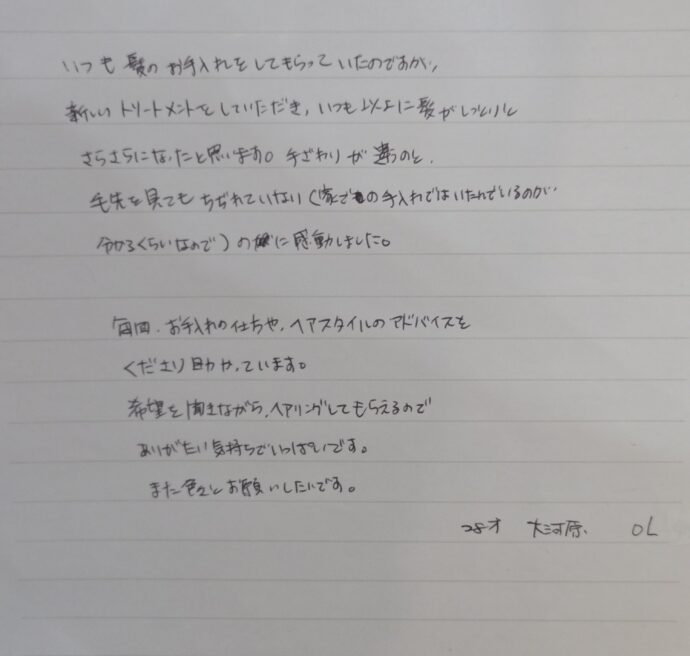 いつも髪のお手入れをしてもらっていたのですが、
新しいトリートメントをしていただき、いつも以上に髪がしっとりと
さらさらになったと思います。手ざわりが違うのと、
毛先を見てもちぢれていない(家での手入れではいたんでいるのが
分かるくらいなので)のに感動しました。
毎回、お手入れの仕方や、ヘアスタイルのアドバイスを
くださり助かっています。
希望を聞きながら、ヘアリングしてもらえるので
ありがたい気持ちでいっぱいです。
また色々とお願いしたいです。
28才 大河原 OL